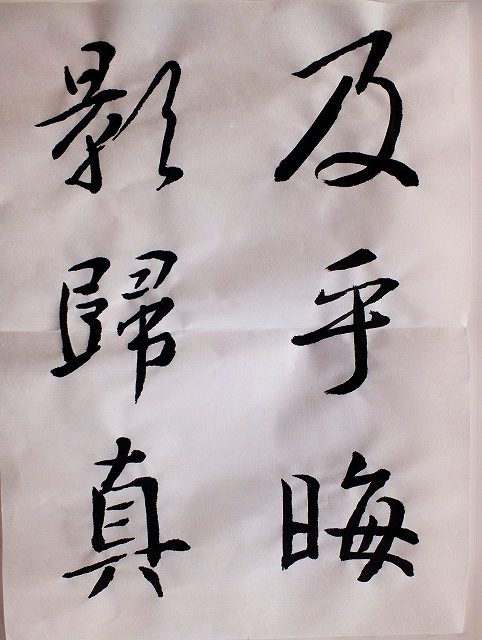 及乎晦
影歸真